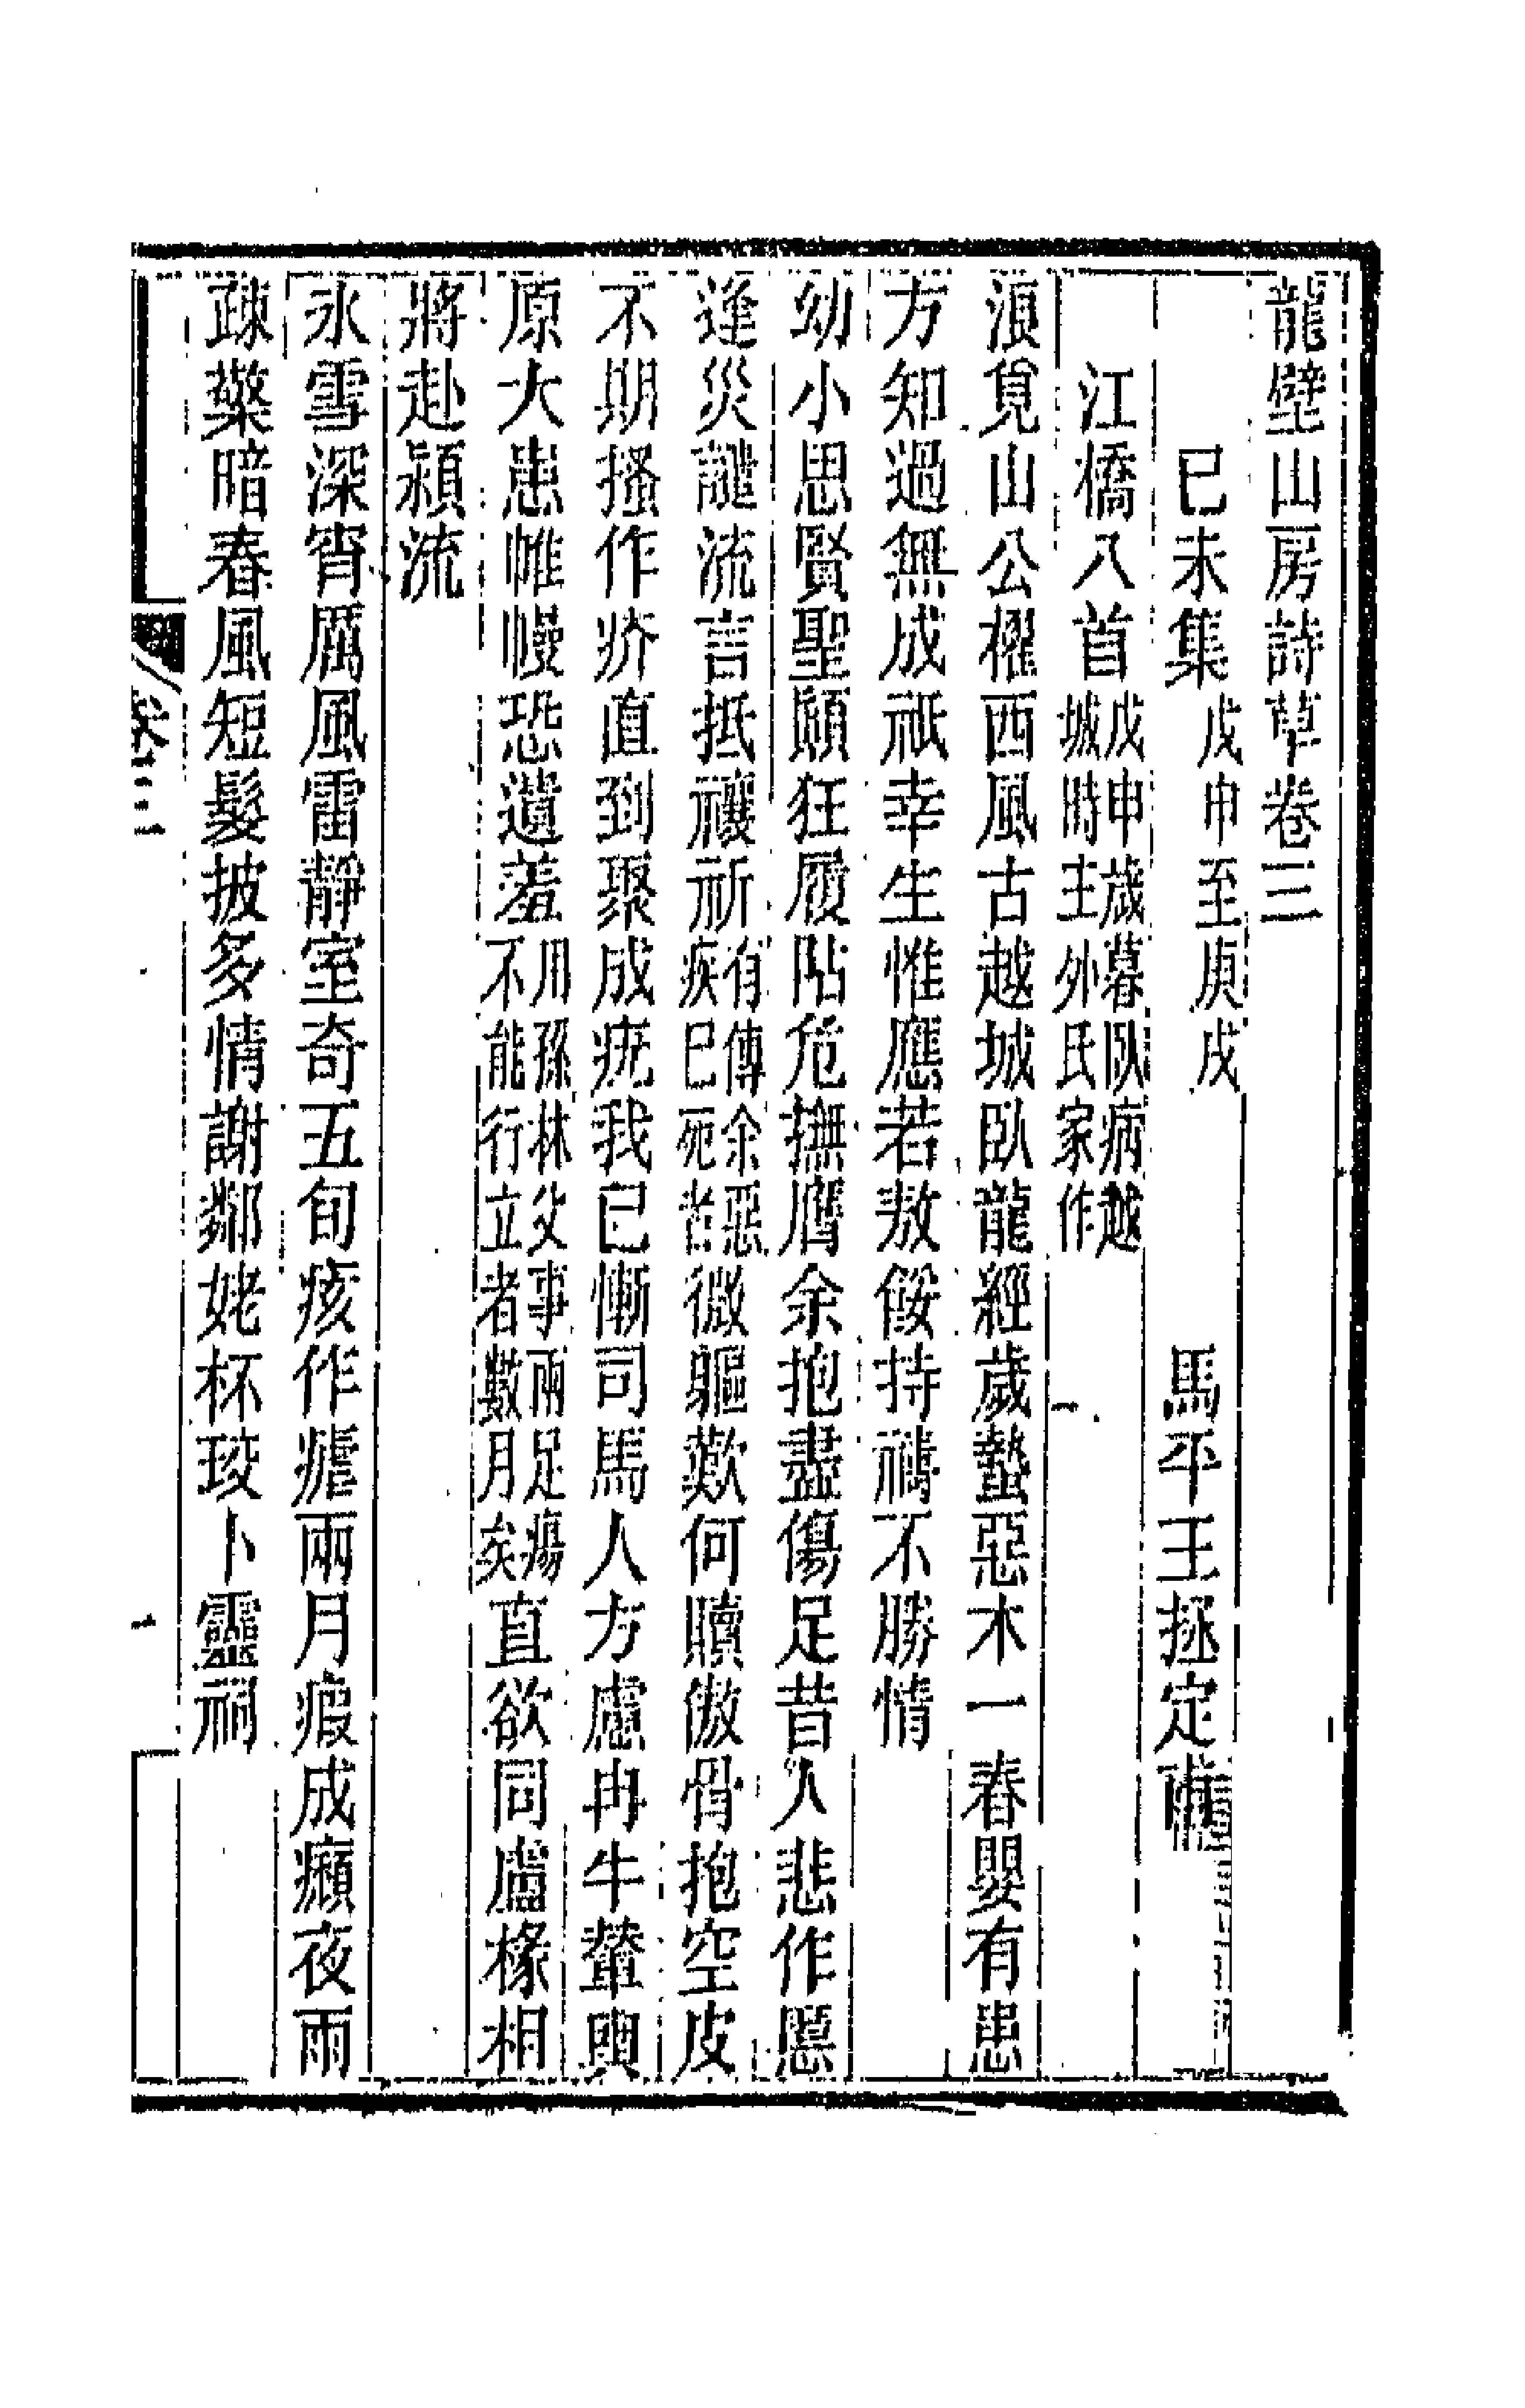 龍壁山房詩草卷三
己未集戊申至庚戌　馬平王拯定甫
江橋八首戊申歲暮臥病越城時主外氏家作
浪覓山公櫂西風古越城臥龍經歲蟄惡木一春嬰有患
方知過無成祇幸生惟應若敖餒持禱不勝情
幼小思賢聖顚狂履阽危撫膺余抱盡傷足昔人悲作慝
逢災譴流言抵禳祈有傳余惡疾已死者微軀歎何贖傲骨抱空皮
不期搔作疥直到聚成疣我已慚司馬人方慮冉牛輦輿
原大患帷幔恐遺羞用孫林父事兩足瘍不能行立者數月矣直欲同廬椽相
將赴潁流
冰雪深宵厲風雷靜室奇五旬痎作瘧兩月瘕成癩夜雨
疎藥暗春風短髮披多情謝鄰姥杯珓卜靈祠
卷三
一